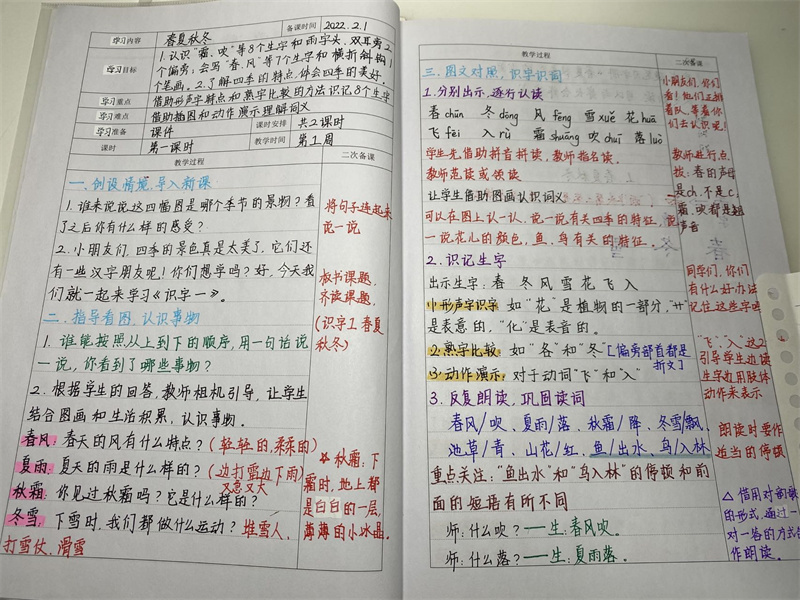 学习内容 春夏秋冬 备课时间 2022.2.1
学习目标
1.认识“霜、吹”等8个生字和雨字头、双耳旁2
个偏旁；会写“春、风”等7个生字和横折斜钩1
个笔画。2.了解四季的特点,体会四季的美好。
学习重点 借助形声字特点和熟字比较的方法识记8个生字
学习难点 借助插图和动作演示理解词义
学习准备 课件 课时安排 共2课时
课时 第一课时 教学时间 第1周
教学过程 二次备课
一、创设情境,导入新课
1.谁来说说这四幅图是哪个季节的景物？看
了之后你有什么样的感受？
将句子连起来
说一说
2.小朋友们,四季的景色真是太美了,它们还
有一些汉字朋友呢！你们想学吗？好,今天我
们就一起来学习《识字一》。
板书课题,
齐读课题,
(识字1春夏
秋冬)
二、指导看图,认识事物
1.谁能按照从上到下的顺序,用一句话说
一说,你看到了哪些事物？
2.根据学生的回答,教师相机引导,让学生
结合图画和生活积累,认识事物。
春风：春天的风有什么特点？(轻轻的,柔柔的)
夏雨：夏天的雨是什么样的？(边打雷边下雨)
又急又大
秋霜：你见过秋霜吗？它是什么样的？
冬雪：下雪时,我们都做什么运动？堆雪人,
打雪仗,滑雪
☆秋霜：下
霜时,地上都
是白白的一层,
薄薄的小冰晶。
教学过程 二次备课
三、图文对照,识字识词
1.分别出示,逐行认读
春chūn 冬dōng 风fēng 雪xuě 花huā
飞fēi 入rù 霜shuāng 吹chuī 落luò
小朋友们,你们
看！他们正排
着队,等着你
们去认识呢！
学生先借助拼音拼读,教师指名读。
教师范读或领读
让学生借助图画认识词义
可以在图上认一认、说一说有关四季的特征,说
一说花儿的颜色,鱼、鸟有关的特征。
教师进行点
拨：春的声母
是ch,不是c,
霜、吹都是翘
舌音
2.识记生字
出示生字：春 冬 风 雪 花 飞 入
1.形声字识字 如“花”是植物的一部分,“艹”
是表意的,“化”是表音的。
2.熟字比较 如“各”和“冬”[偏旁部首都是
折文]
3.动作演示：对于动词“飞”和“入”
同学们,你们
有什么好办法
记住这些字吗
“飞”、“入”这2
引导学生边读
生字边用肢体
动作来表示
3.反复朗读,巩固读词
春风/吹、夏雨/落、秋霜/降、冬雪/飘、
池草/青、山花/红、鱼/出水、鸟/入林
重点关注：“鱼出水”和“鸟入林”的停顿和前
面的短语有所不同
师：什么吹？——生：春风吹。
师：什么落？——生：夏雨落。
朗读时要作
适当的停顿
△借用对
的形式,通过一
对一答的方式
作朗读。